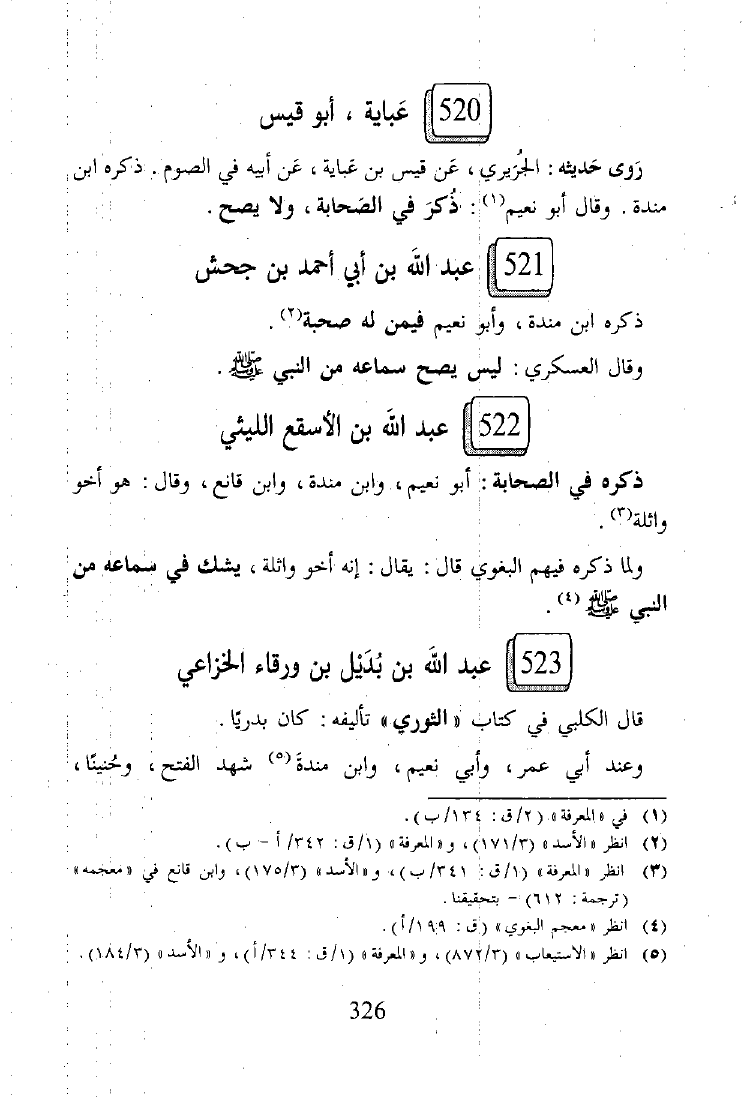 520 عَباية ، أبو قيس
رَوى حَديثه : الجُرَيري ، عَن قيس بن عَباية ، عَن أبيه في الصوم . ذكره ابن
مندة . وقال أبو نعيم(١) : ذُكرَ في الصَحابة ، ولا يصح .
521 عبد الله بن أبي أحمد بن جحش
ذكره ابن مندة ، وأبو نعيم فيمن له صحبة(٢) .
وقال العسكري : ليس يصح سماعه من النبي ﷺ .
522 عبد الله بن الأسقع الليثي
ذكره في الصحابة : أبو نعيم ، وابن مندة ، وابن قانع ، وقال : هو أخو
واثلة(٣) .
ولما ذكره فيهم البغوي قال : يقال : إنه أخو واثلة ، يشك في سماعه من
النبي ﷺ (٤) .
523 عبد الله بن بُدَيْل بن ورقاء الخزاعي
قال الكلبي في كتاب « الثوري » تأليفه : كان بدريًا .
وعند أبي عمر ، وأبي نعيم ، وابن مندةَ(٥) شهد الفتح ، وحُنينًا ،
(١) في «المعرفة» (٢/ق : ١٣٤/ب) .
(٢) انظر «الأسد» (١٧١/٣) ، و«المعرفة» (١/ق : ٣٤٢/ أ – ب) .
(٣) انظر «المعرفة» (١/ق : ٣٤١/ب) ، و«الأسد» (١٧٥/٣) ، وابن قانع في «معجمه»
(ترجمة : ٦١٢) – بتحقيقنا .
(٤) انظر «معجم البغوي» (ق : ١٩٩/أ) .
(٥) انظر «الاستيعاب» (٨٧٢/٣) ، و«المعرفة» (١/ق : ٣٤٤/أ) ، و «الأسد» (١٨٤/٣) .
326